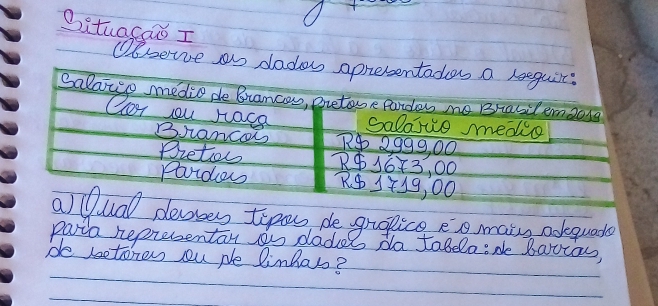 Situação I
Observe os dados apresentados a seguir:
Salário médio de Brancos, Pretos e Pardos no Brasil em 2019
Cor ou raça Salário médio
Brancos R$ 2999,00
Pretos R$ 1673,00
Pardos R$ 1719,00
a) Qual desses tipos de gráfico é o mais adequado
para representar os dados da tabela: de barras,
de setores ou de linhas?